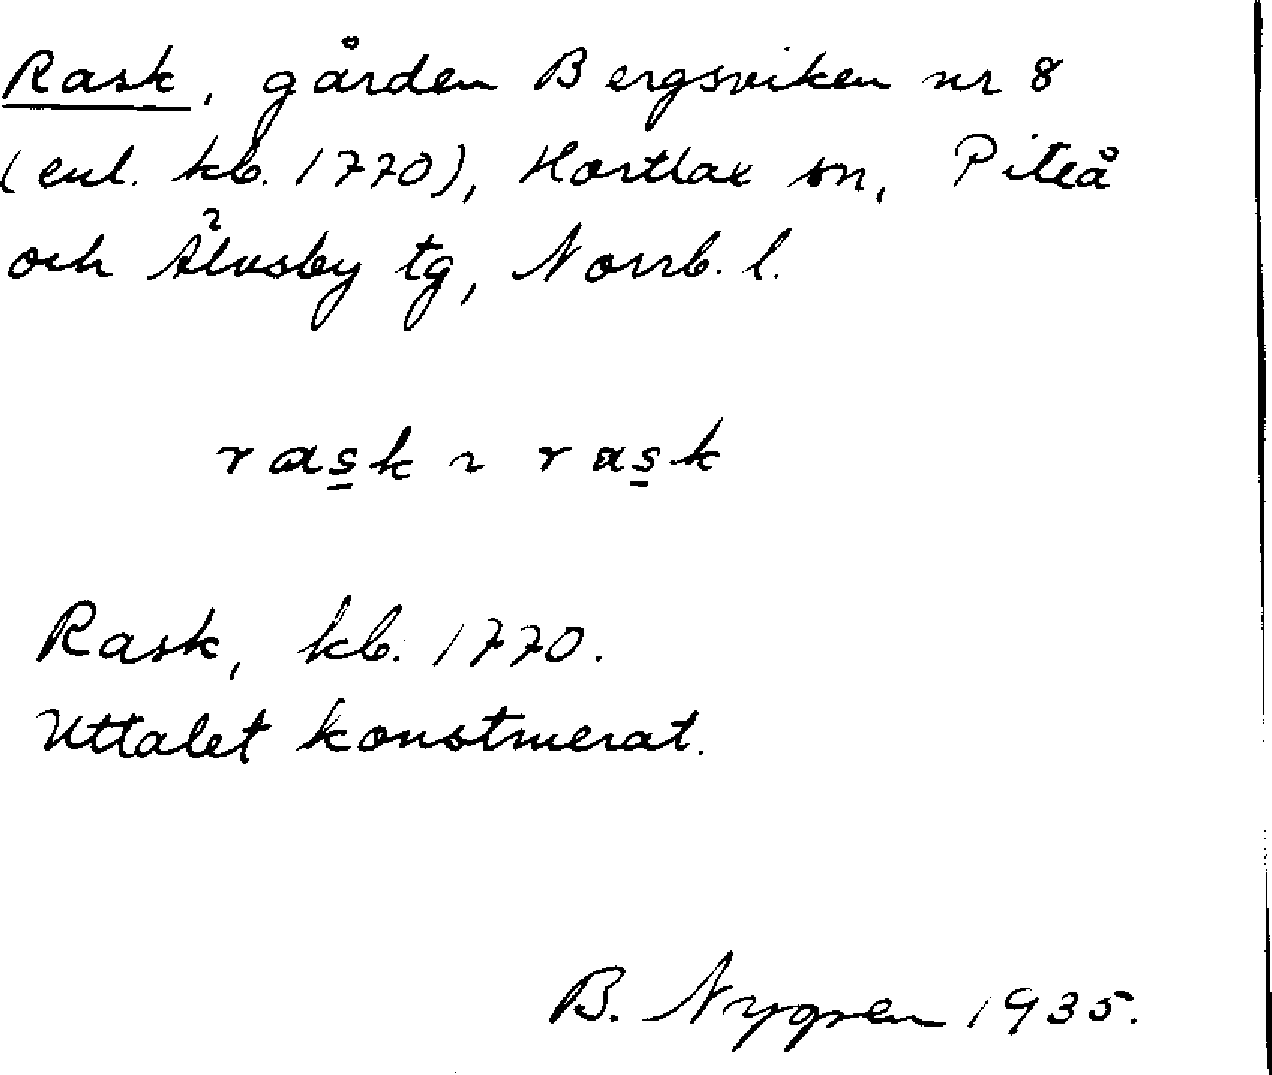 Rask, gården Bergsviken nr 8
(enl. kb. 1770), Hortlax sn, Piteå
och Älvsby tg, Norrb. l.
rask ~ rask
Rask, kb. 1770.
Uttalet konstruerat.
B. Nygren 1935.